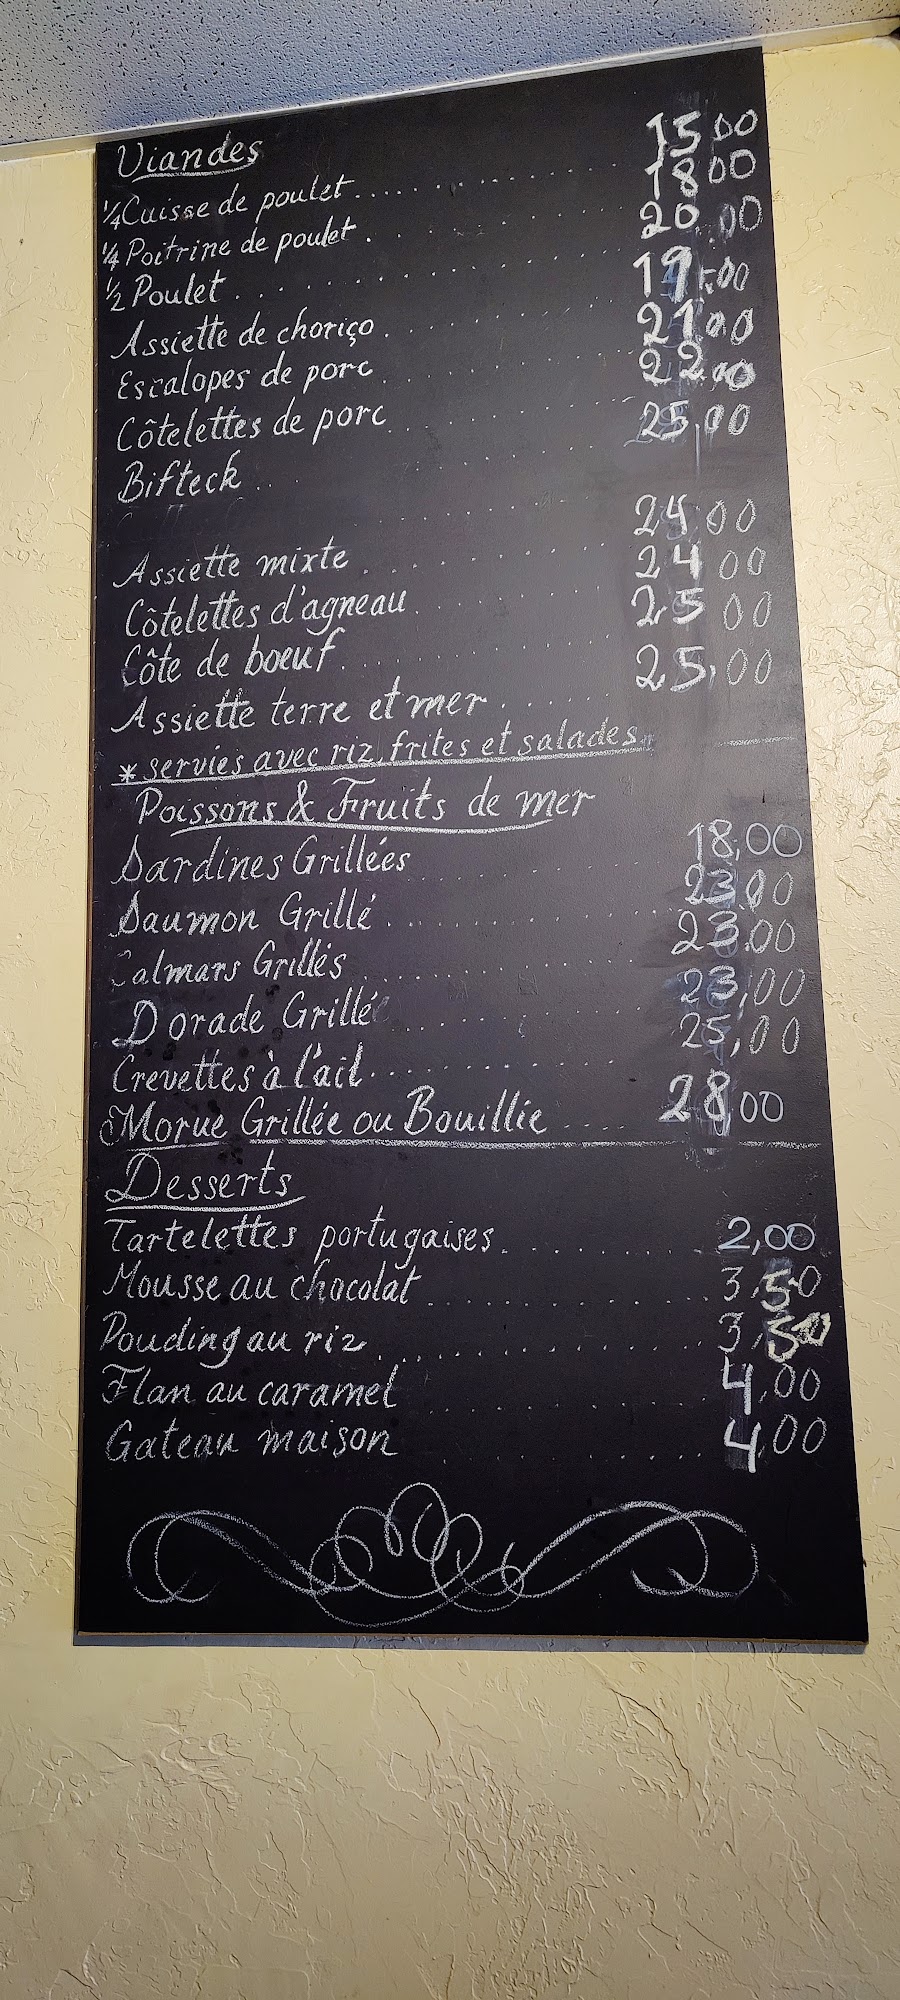 Viandes
1/4 Cuisse de poulet .......... 15.00
1/4 Poitrine de poulet .......... 18.00
1/2 Poulet .......... 20.00
Assiette de choriço .......... 19.00
Escalopes de porc .......... 21.00
Côtelettes de porc .......... 22.00
Bifteck .......... 25.00
Assiette mixte .......... 24.00
Côtelettes d'agneau .......... 24.00
Côte de boeuf .......... 25.00
Assiette terre et mer .......... 25.00
* servies avec riz, frites et salades
Poissons & Fruits de mer
Sardines Grillées .......... 18,00
Saumon Grillé .......... 23,00
Calmars Grillés .......... 23,00
Dorade Grillé .......... 23,00
Crevettes à l'ail .......... 25,00
Morue Grillée ou Bouillie .... 28,00
Desserts
Tartelettes portugaises .......... 2,00
Mousse au chocolat .......... 3,50
Pouding au riz .......... 3,50
Flan au caramel .......... 4,00
Gateau maison .......... 4,00